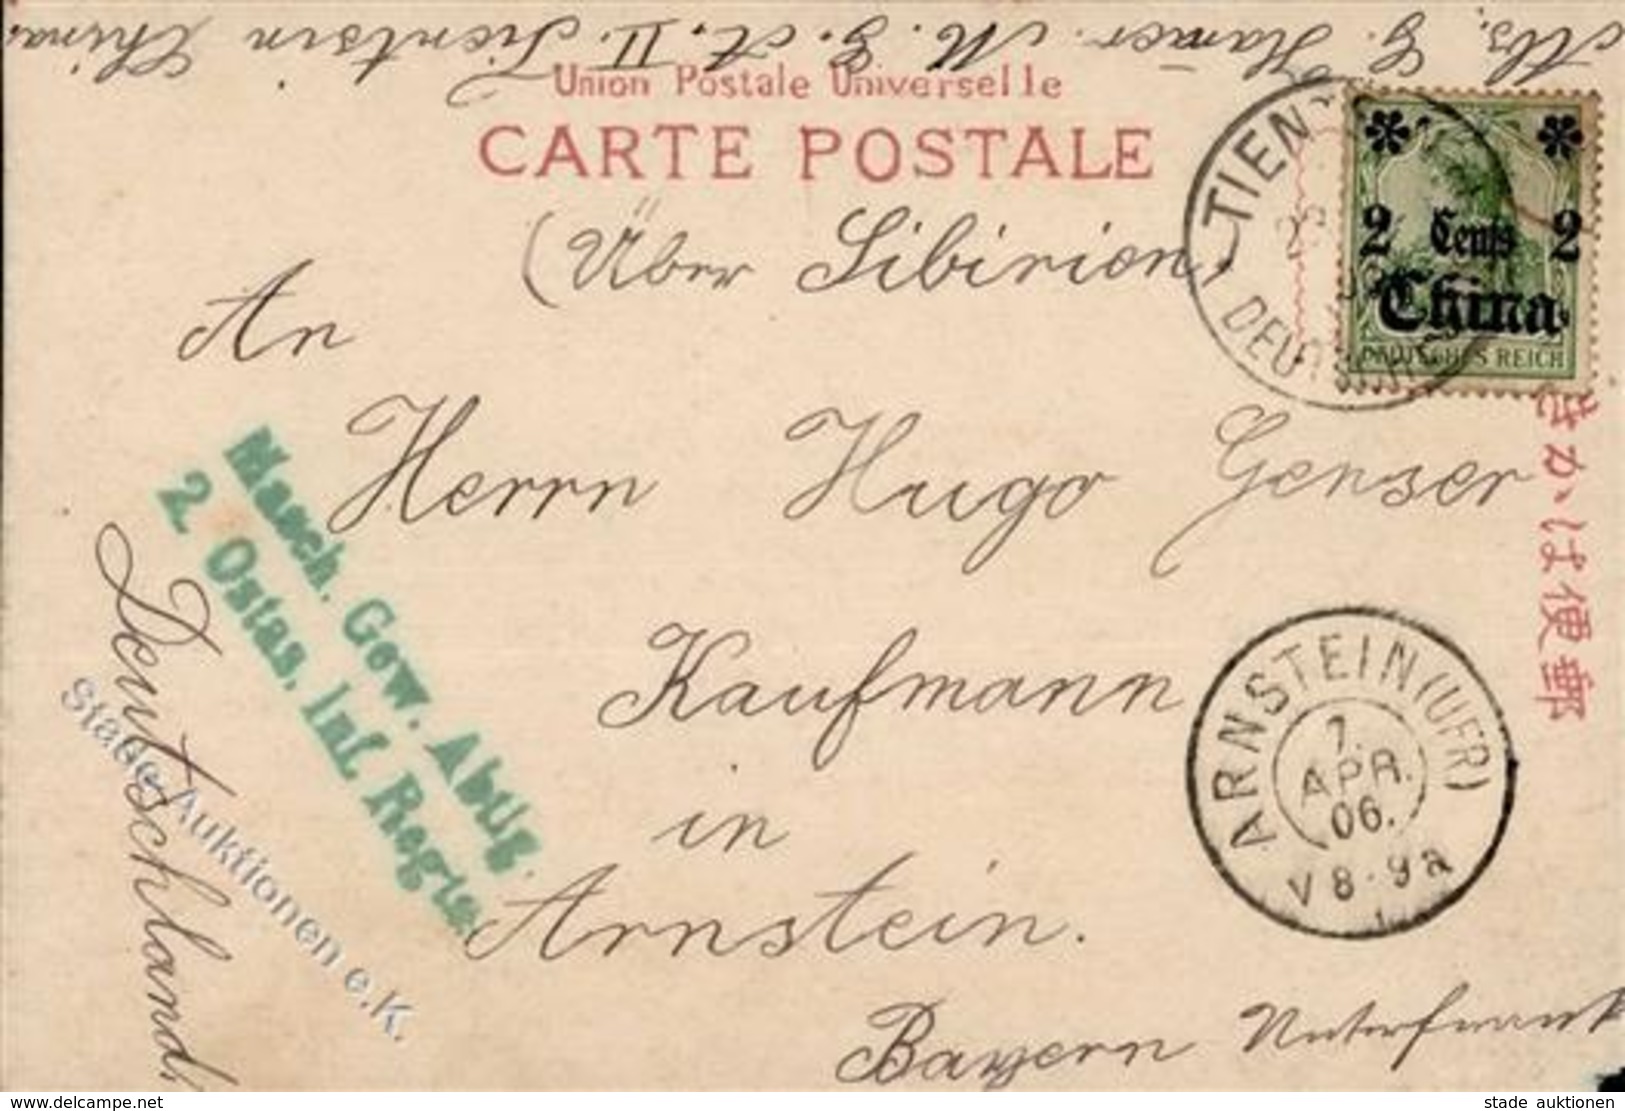 Abs. G. Hämer. M. G. A. II. Tientsin China.
Union Postale Universelle
CARTE POSTALE
(Über Sibirien)
TIEN
DEUTSCHE
2 Cents 2
China
DEUTSCHES REICH
An
Herrn Hugo Genser
Kaufmann
in
Arnstein.
Bayern Unterfrank
Deutschland.
Masch. Gew. Abtlg.
2. Ostas. Inf. Regts.
郵便はかき
ARNSTEIN (UFR)
7.
APR.
06.
V 8-9a
Stade Auktionen e.K.
www.delcampe.net
stade auktionen